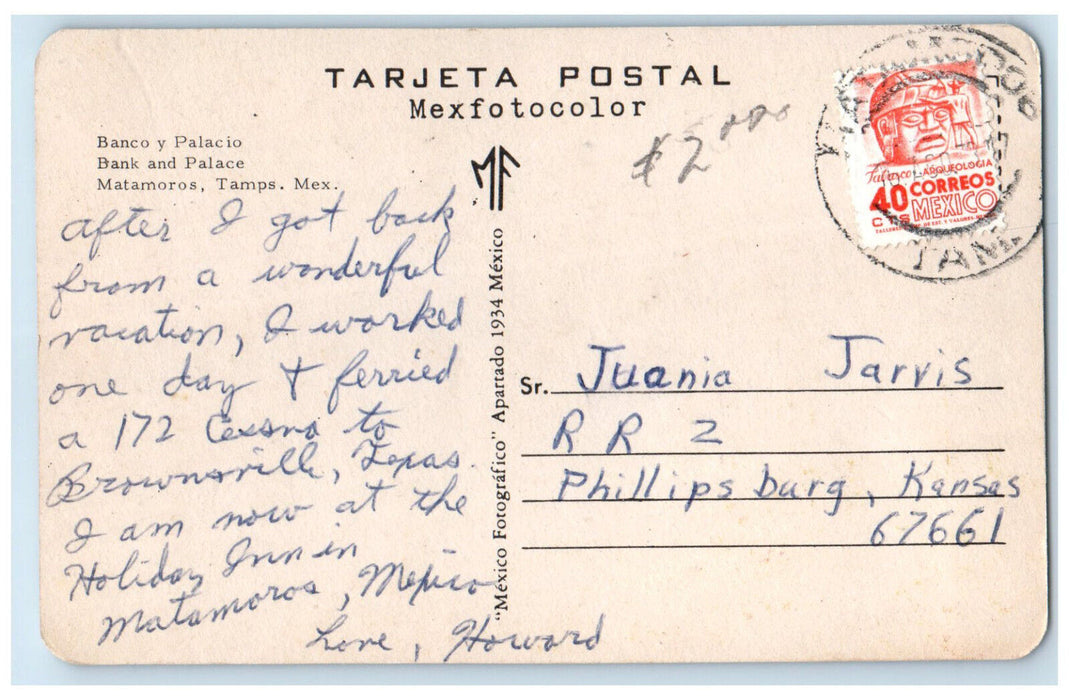 TARJETA POSTAL
Mexfotocolor
Banco y Palacio
Bank and Palace
Matamoros, Tamps. Mex.
$2.000
Tabasco - ARQUEOLOGIA
40 CORREOS
CTS MEXICO
TAM
after I got back
from a wonderful
vacation, I worked
one day & ferried
a 172 Cessna to
Brownsville, Texas.
I am now at the
Holiday Inn in
Matamoros, Mexico
Love, Howard
"México Fotográfico" Apartado 1934 México
Sr. Juania Jarvis
R R 2
Phillipsburg, Kansas
67661